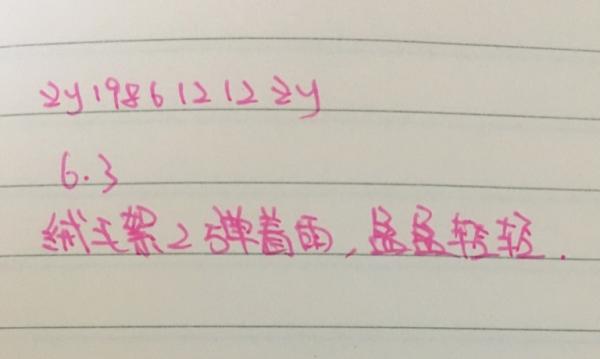 zy19861212zy
6.3
绒毛絮25弹着雨,盈盈轻轻.